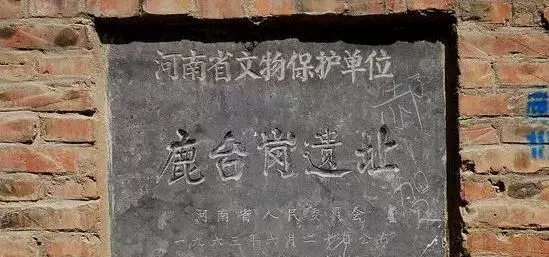 河南省文物保护单位
鹿台岗遗址
河南省人民委员会
一九六三年六月二十日公布